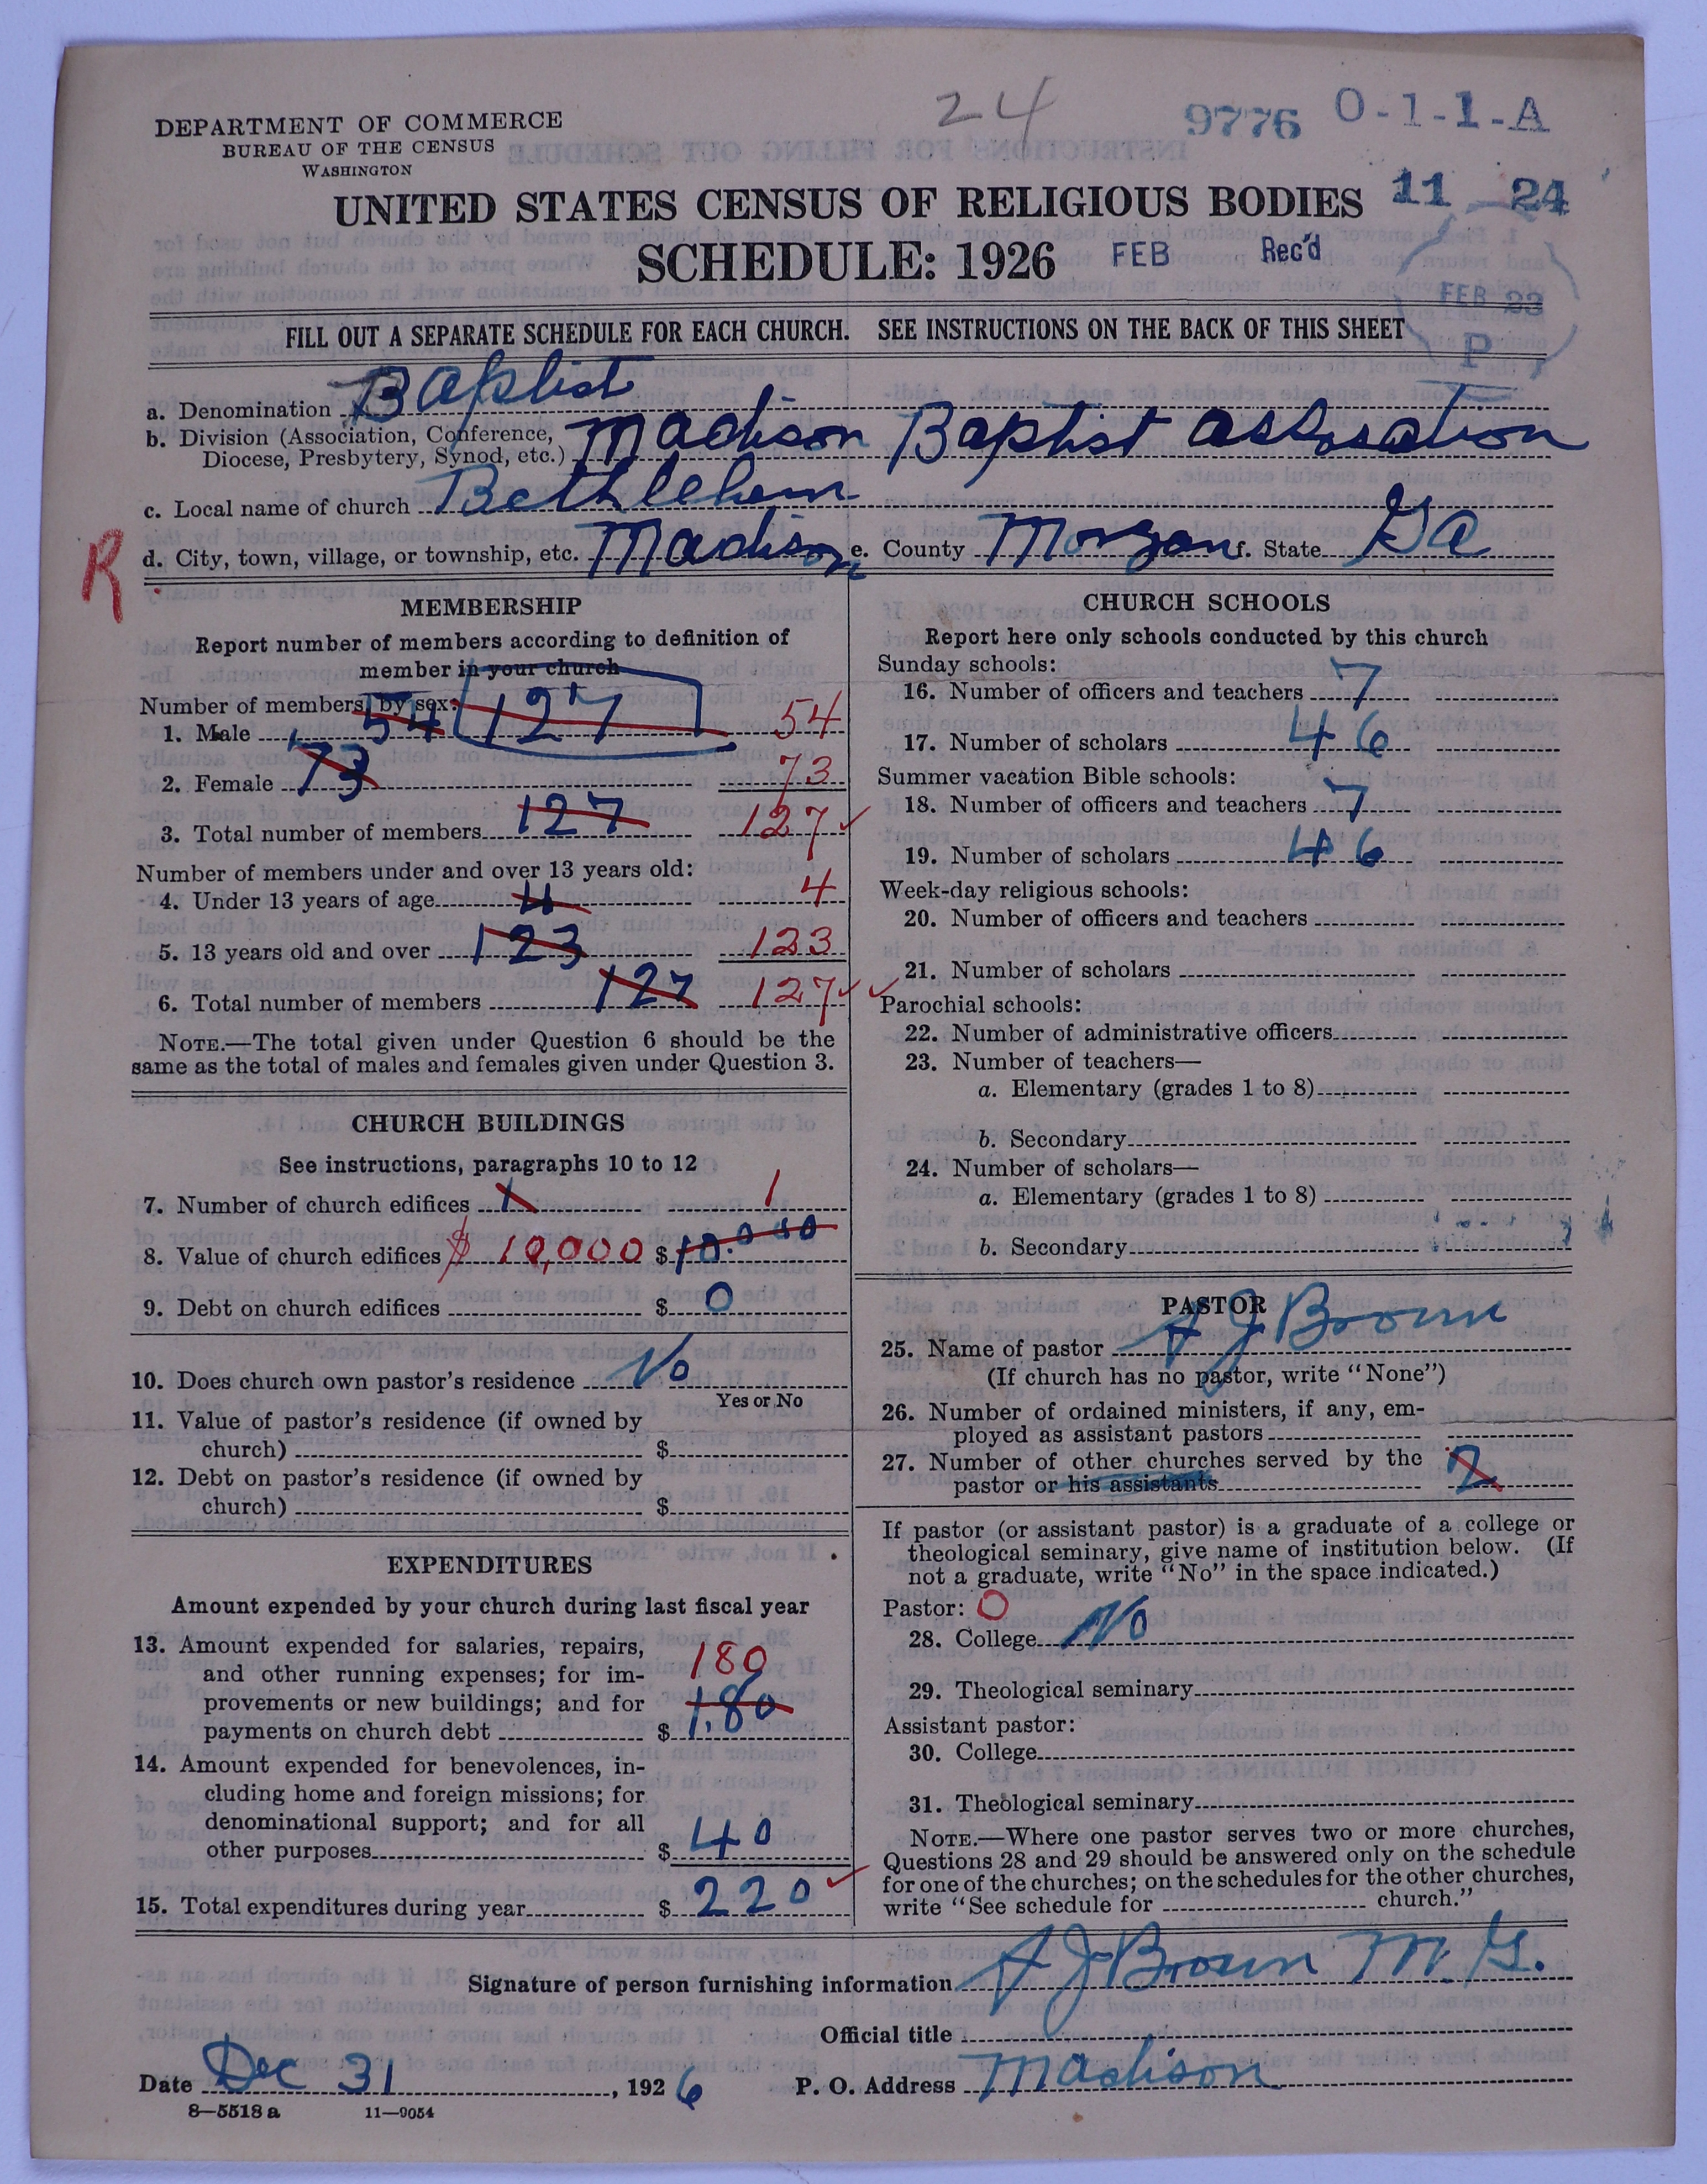 24
9776 0-1-1-A
DEPARTMENT OF COMMERCE
BUREAU OF THE CENSUS
WASHINGTON
11 24
UNITED STATES CENSUS OF RELIGIOUS BODIES
SCHEDULE: 1926 FEB Rec'd
FEB 23
P
FILL OUT A SEPARATE SCHEDULE FOR EACH CHURCH. SEE INSTRUCTIONS ON THE BACK OF THIS SHEET
a. Denomination Baptist
b. Division (Association, Conference, Diocese, Presbytery, Synod, etc.) Madison Baptist Assosation
c. Local name of church Bethlehem
R
d. City, town, village, or township, etc. Madison e. County Morgan f. State Ga
MEMBERSHIP
Report number of members according to definition of
member in your church
Number of members by sex:
1. Male 54 127 54
2. Female 73 73
3. Total number of members 127 127
Number of members under and over 13 years old:
4. Under 13 years of age 4 4
5. 13 years old and over 123 123
6. Total number of members 127 127
NOTE.—The total given under Question 6 should be the
same as the total of males and females given under Question 3.
CHURCH BUILDINGS
See instructions, paragraphs 10 to 12
7. Number of church edifices 1 1
8. Value of church edifices $ 10,000 $ 10.000
9. Debt on church edifices $ 0
10. Does church own pastor's residence No
Yes or No
11. Value of pastor's residence (if owned by
church) $
12. Debt on pastor's residence (if owned by
church) $
EXPENDITURES
Amount expended by your church during last fiscal year
13. Amount expended for salaries, repairs,
and other running expenses; for im-
provements or new buildings; and for
payments on church debt $ 180
180
14. Amount expended for benevolences, in-
cluding home and foreign missions; for
denominational support; and for all
other purposes $ 40
15. Total expenditures during year $ 220
CHURCH SCHOOLS
Report here only schools conducted by this church
Sunday schools:
16. Number of officers and teachers 7
17. Number of scholars 46
Summer vacation Bible schools:
18. Number of officers and teachers 7
19. Number of scholars 46
Week-day religious schools:
20. Number of officers and teachers
21. Number of scholars
Parochial schools:
22. Number of administrative officers
23. Number of teachers—
a. Elementary (grades 1 to 8)
b. Secondary
24. Number of scholars—
a. Elementary (grades 1 to 8)
b. Secondary
PASTOR
25. Name of pastor A J Brown
(If church has no pastor, write "None")
26. Number of ordained ministers, if any, em-
ployed as assistant pastors
27. Number of other churches served by the
pastor or his assistants 2
If pastor (or assistant pastor) is a graduate of a college or
theological seminary, give name of institution below. (If
not a graduate, write "No" in the space indicated.)
Pastor: 0
28. College No
29. Theological seminary
Assistant pastor:
30. College
31. Theological seminary
NOTE.—Where one pastor serves two or more churches,
Questions 28 and 29 should be answered only on the schedule
for one of the churches; on the schedules for the other churches,
write "See schedule for church."
Signature of person furnishing information A J Brown M. G.
Official title
Date Dec 31, 1926 P. O. Address Madison
8—5518 a 11—9054